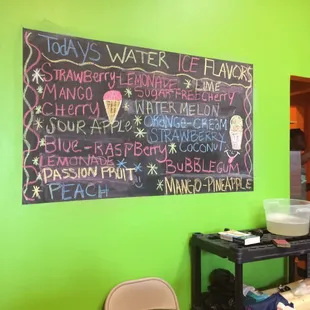 TodAYS WATER ICE FLAVORS
STRAWBerry-LEMONADE * LIME
* MANGO * SUGAR FREE-CHERRY
* CHerry * WATERMELON
* SOUR APPLE * ORANGE-CREAM
* STRAWBERRY
* BLUE-RASPBerry * COCONUT
* LEMONADE * * BUBBLEGUM
* PASSION FRUIT
* PEACH * MANGO-PINEAPPLE